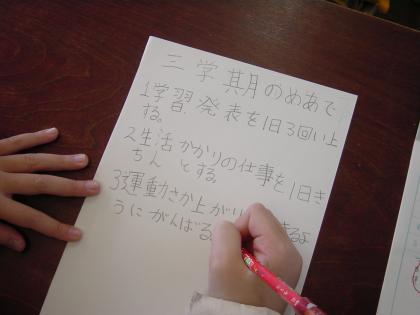 三学期のめあて
1学習 発表を1日3回い上
する。
2生活 かかりの仕事を1日き
ちんとする。
3運動 さか上がり
るよ
うにがんばる